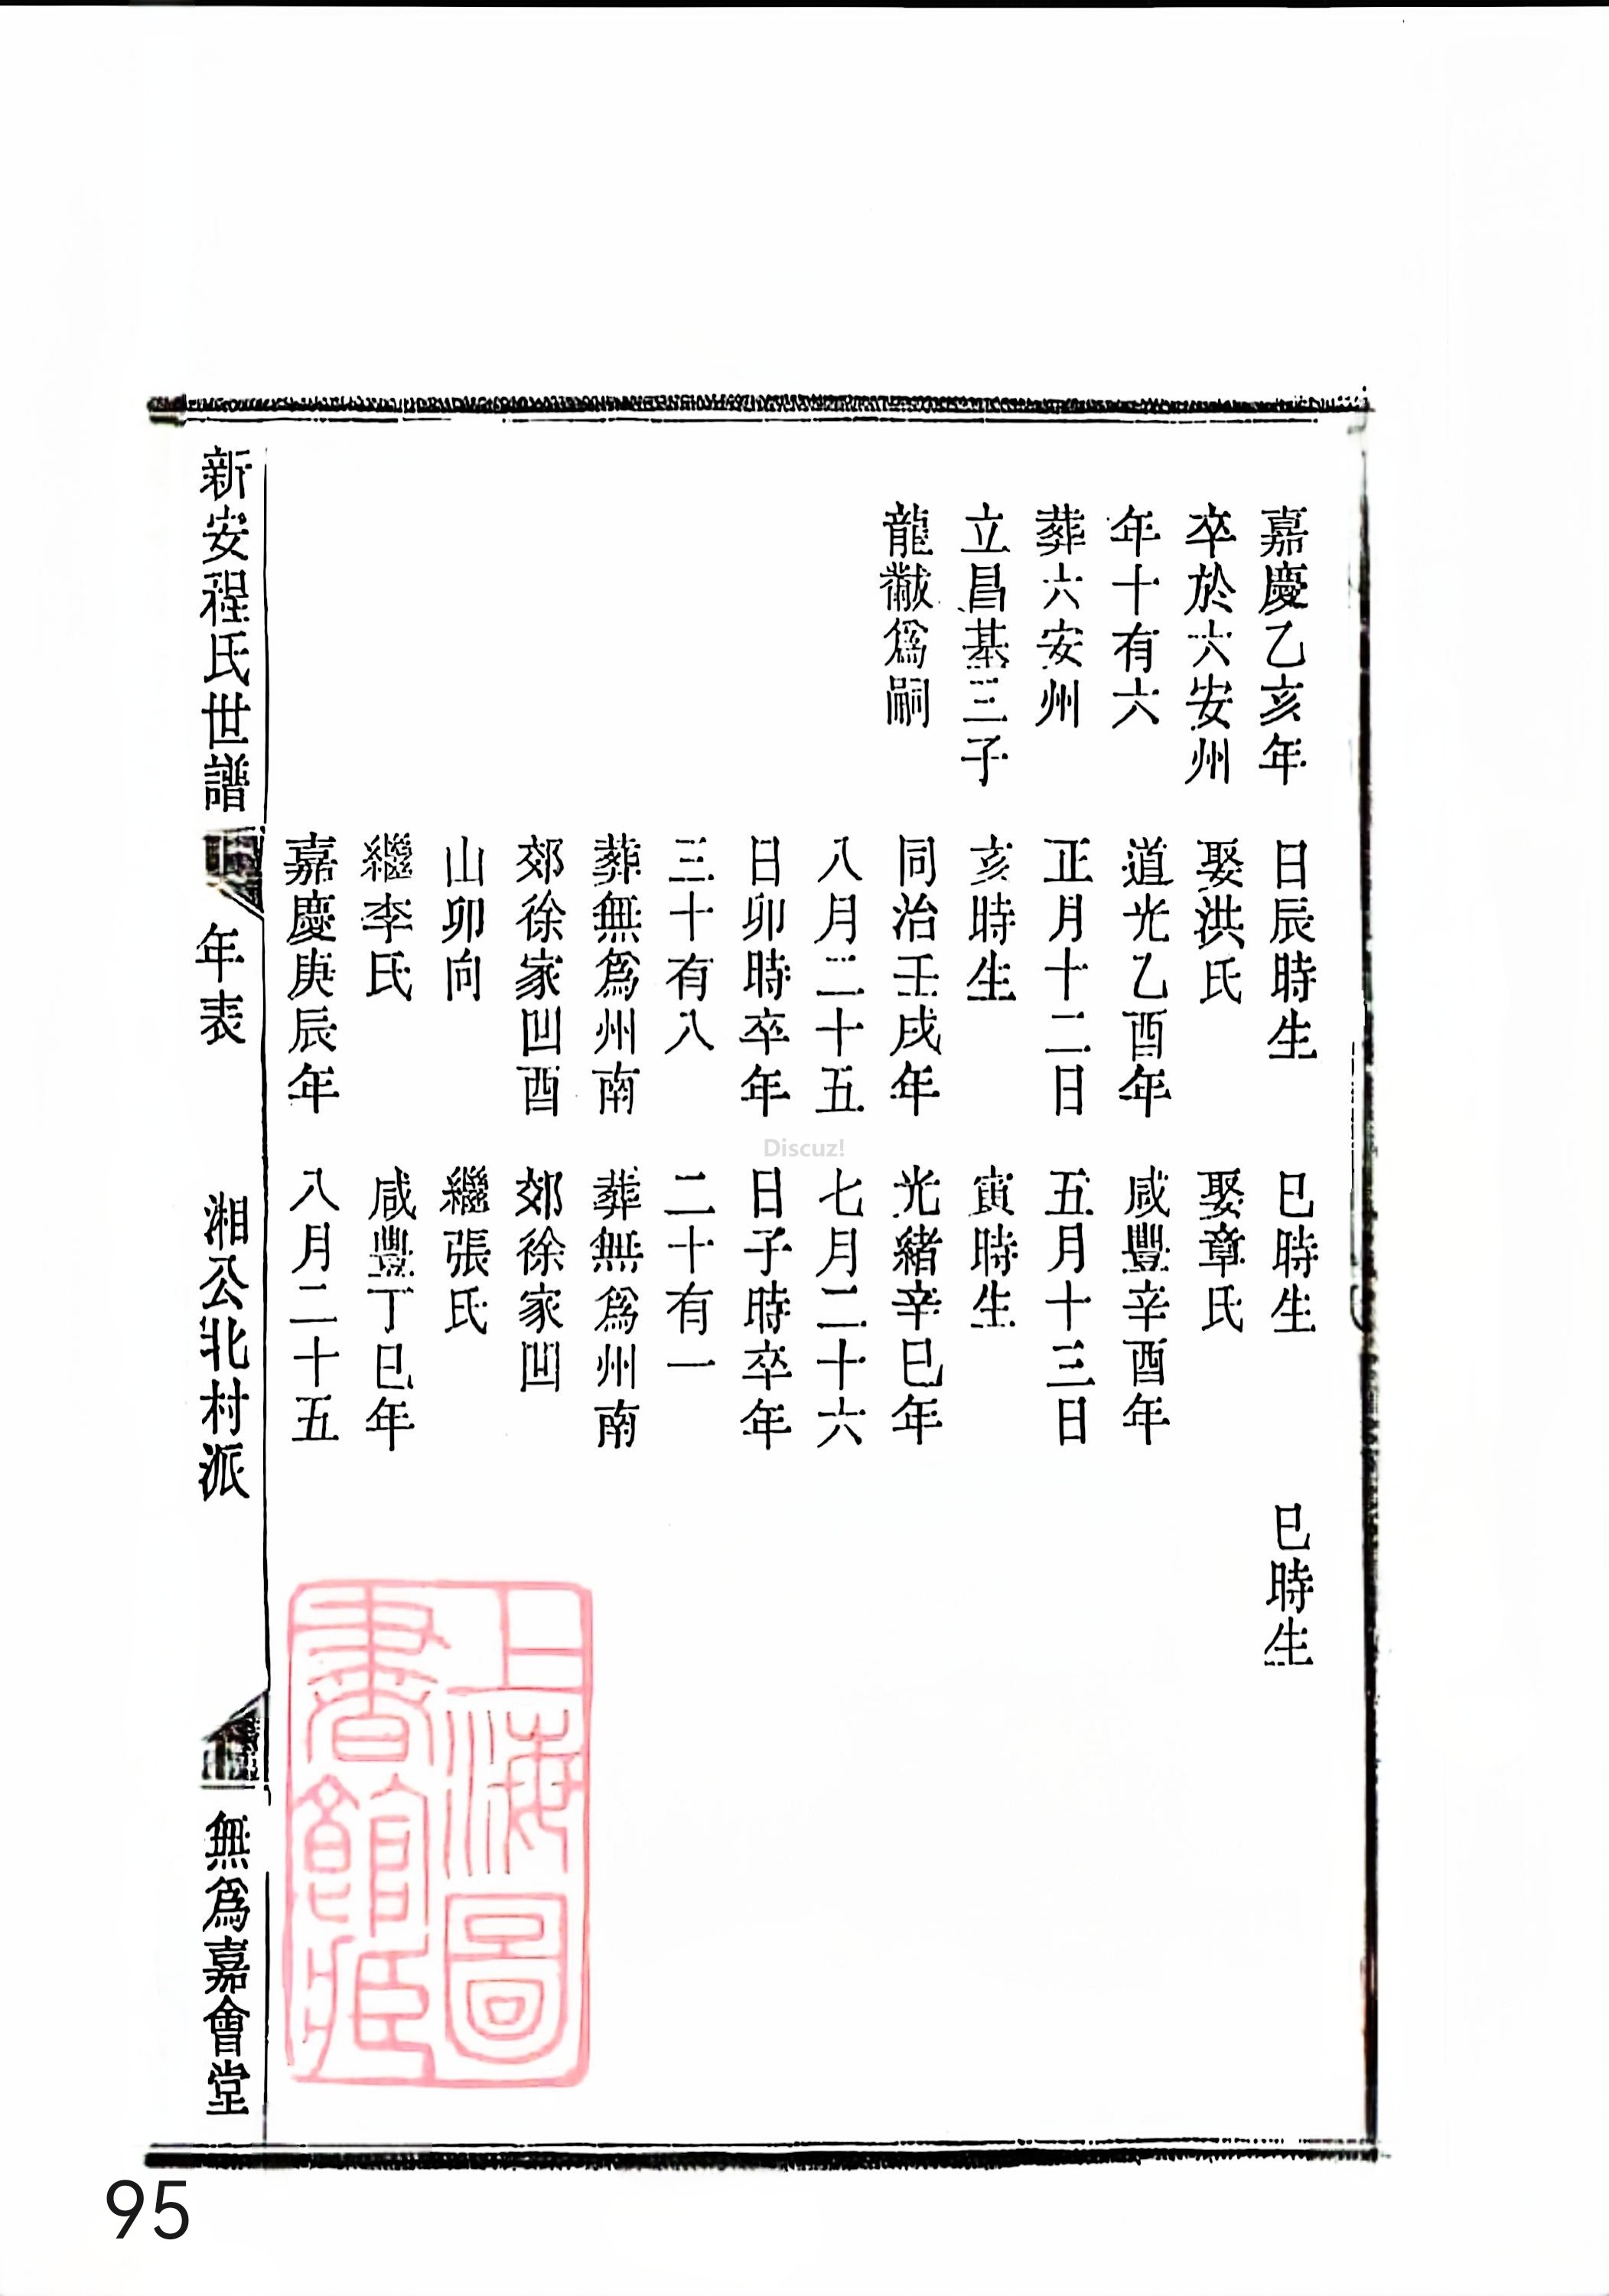 嘉慶乙亥年
卒於六安州
年十有六
葬六安州
立昌基三子
龍黻爲嗣
日辰時生
娶洪氏
道光乙酉年
正月十二日
亥時生
同治壬戌年
八月二十五
日卯時卒年
三十有八
葬無爲州南
郊徐家凹酉
山卯向
繼李氏
嘉慶庚辰年
巳時生
娶章氏
咸豐辛酉年
五月十三日
寅時生
光緒辛巳年
七月二十六
日子時卒年
二十有一
葬無爲州南
郊徐家凹
繼張氏
咸豐丁巳年
八月二十五
巳時生
新安程氏世譜
年表
湘公北村派
無爲嘉會堂
上海圖
書館藏
Discuz!
95